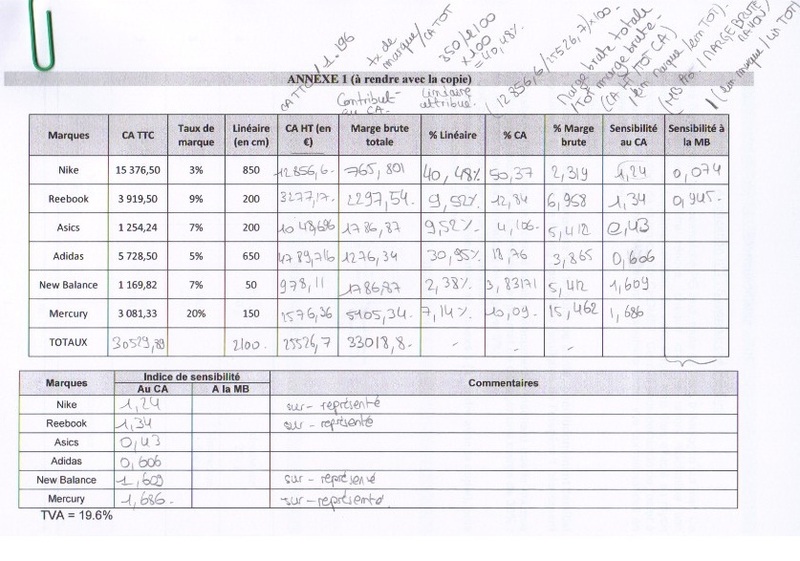 CA TTC / 1.196
tx de marque / CA TOT
350/2100 x100 = 40,48%
(12856,6/25526,7)x100.
Marge brute totale / TOT marge brute -
(CA HT / TOT CA) / (lin marque / lin TOT)
(MB Pro / MARGE BRUTE
(lin marque / lin TOT)
ANNEXE 1 (à rendre avec la copie)
Contribut- au CA.
Linéaire attribué.
Marques CA TTC Taux de marque Linéaire (en cm) CA HT (en €) Marge brute totale % Linéaire % CA % Marge brute Sensibilité au CA Sensibilité à la MB
Nike 15 376,50 3% 850 12856,6. 765,801 40,48% 50,37 2,319 1,24 0,074
Reebook 3 919,50 9% 200 3277,17. 2297,54. 9,52% 12,84 6,958 1,34 0,945.
Asics 1 254,24 7% 200 1048,696 1786,87 9,52% 4,106. 5,412 0,43
Adidas 5 728,50 5% 650 4789,716 1276,34 30,95% 18,76 3,865 0,606
New Balance 1 169,82 7% 50 978,11 1786,87 2,38% 3,83171 5,412 1,609
Mercury 3 081,33 20% 150 2576,36 5105,34. 7,14% 10,09. 15,462 1,686
TOTAUX 30529,89 2100. 25526,7 33018,8- - - -
Marques Indice de sensibilité Commentaires
Au CA A la MB
Nike 1,24 sur-représenté
Reebook 1,34 sur-représenté
Asics 0,43
Adidas 0,606
New Balance 1,609 sur-représenté
Mercury 1,686- sur-représenté.
TVA = 19.6%